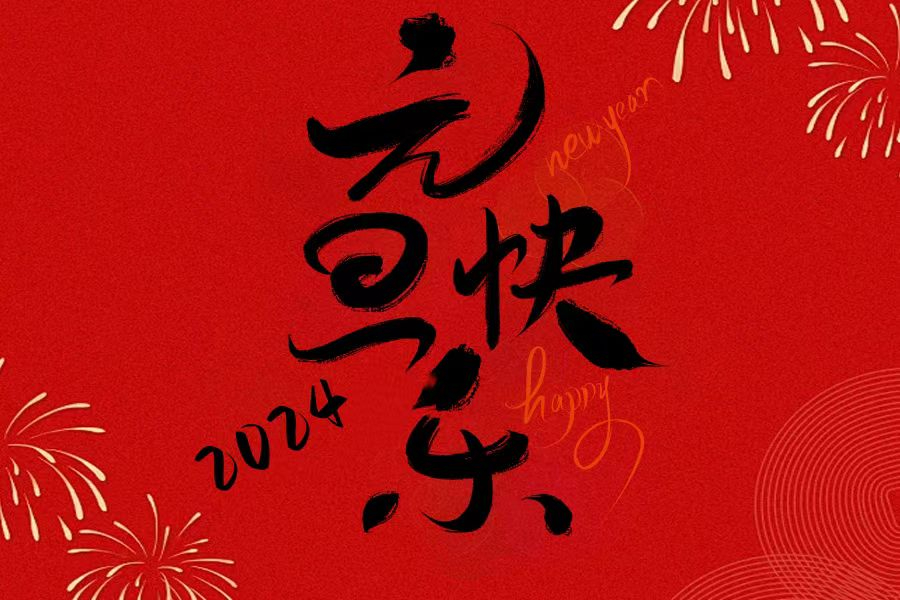 元旦快乐
new year
happy
2024